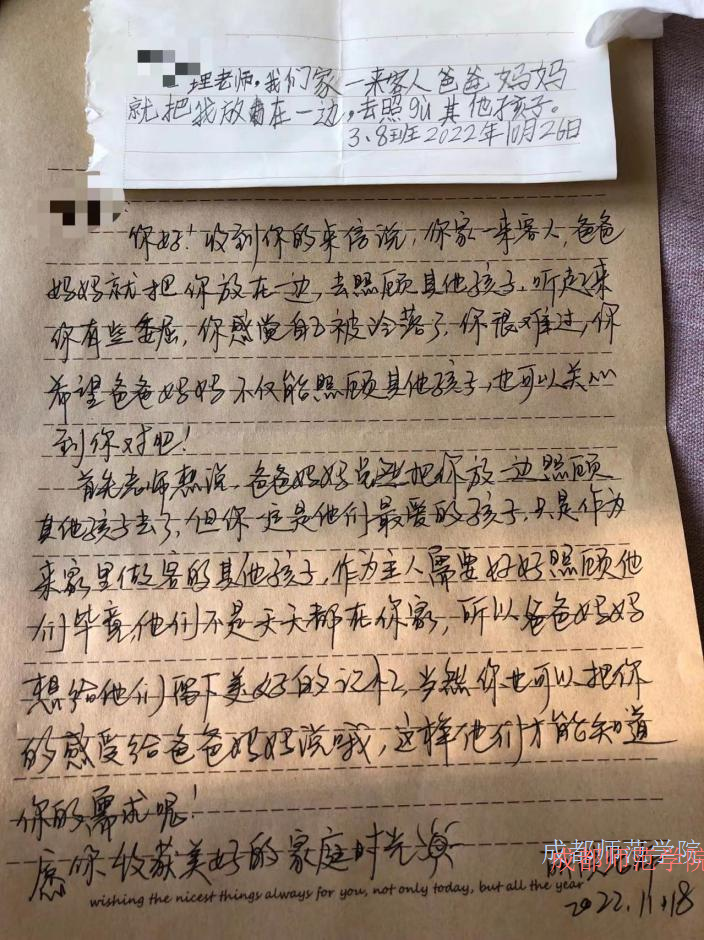 理老师，我们家一来客人爸爸妈妈
就把我放在一边，去照gu其他孩子。
3、8班2022年10月26日
你好！收到你的来信说，你家一来客人，爸爸
妈妈就把你放在一边，去照顾其他孩子，听起来
你有些委屈，你感觉自己被冷落了，你很难过，你
希望爸爸妈妈不仅能照顾其他孩子，也可以关心
到你对吧！
首先老师想说，爸爸妈妈虽然把你放一边照顾
其他孩子去了，但你一定是他们最爱的孩子，只是作为
来家里做客的其他孩子，作为主人需要好好照顾他
们毕竟他们不是天天都在你家，所以爸爸妈妈
想给他们留下美好的记忆，当然你也可以把你
的感受给爸爸妈妈说哦，这样他们才能知道
你的需求呢！
愿你收获美好的家庭时光
成都师范学院
成都师范学院
wishing the nicest things always for you, not only today, but all the year
2022.11.18